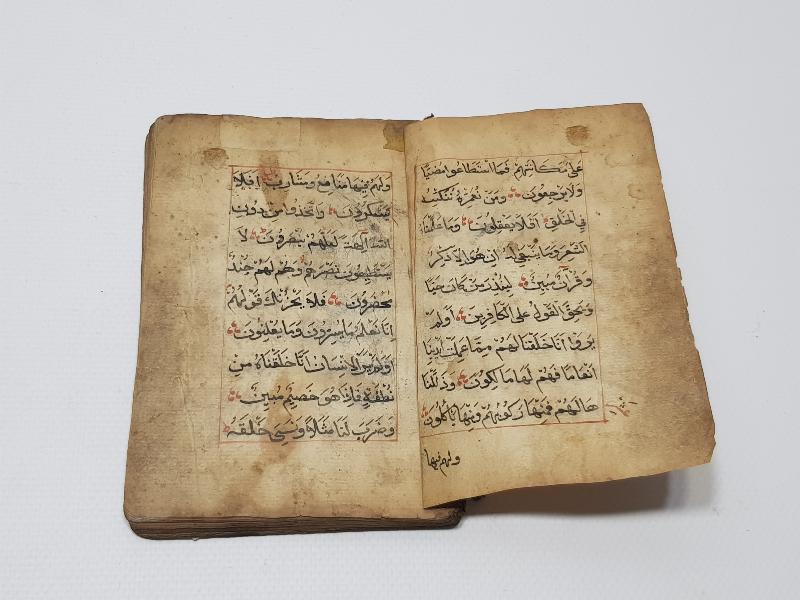 على مكانتهم فما استطاعوا مضيا
ولا يرجعون ومن نعمره ننكسه
في الخلق افلا يعقلون وما علمناه
الشعر وما ينبغي له ان هو الا ذكر
وقرآن مبين لينذر من كان حيا
ويحق القول على الكافرين اولم
يروا انا خلقنا لهم مما عملت ايدينا
انعاما فهم لها مالكون وذللنا
ها لهم فمنها ركوبهم ومنها ياكلون
ولهم فيها
ولهم فيها منافع ومشارب افلا
يشكرون واتخذوا من دون
الله آلهة لعلهم ينصرون لا
يستطيعون نصرهم وهم لهم جند
محضرون فلا يحزنك قولهم
انا نعلم ما يسرون وما يعلنون
اولم ير الانسان انا خلقناه من
نطفة فاذا هو خصيم مبين
وضرب لنا مثلا ونسي خلقه